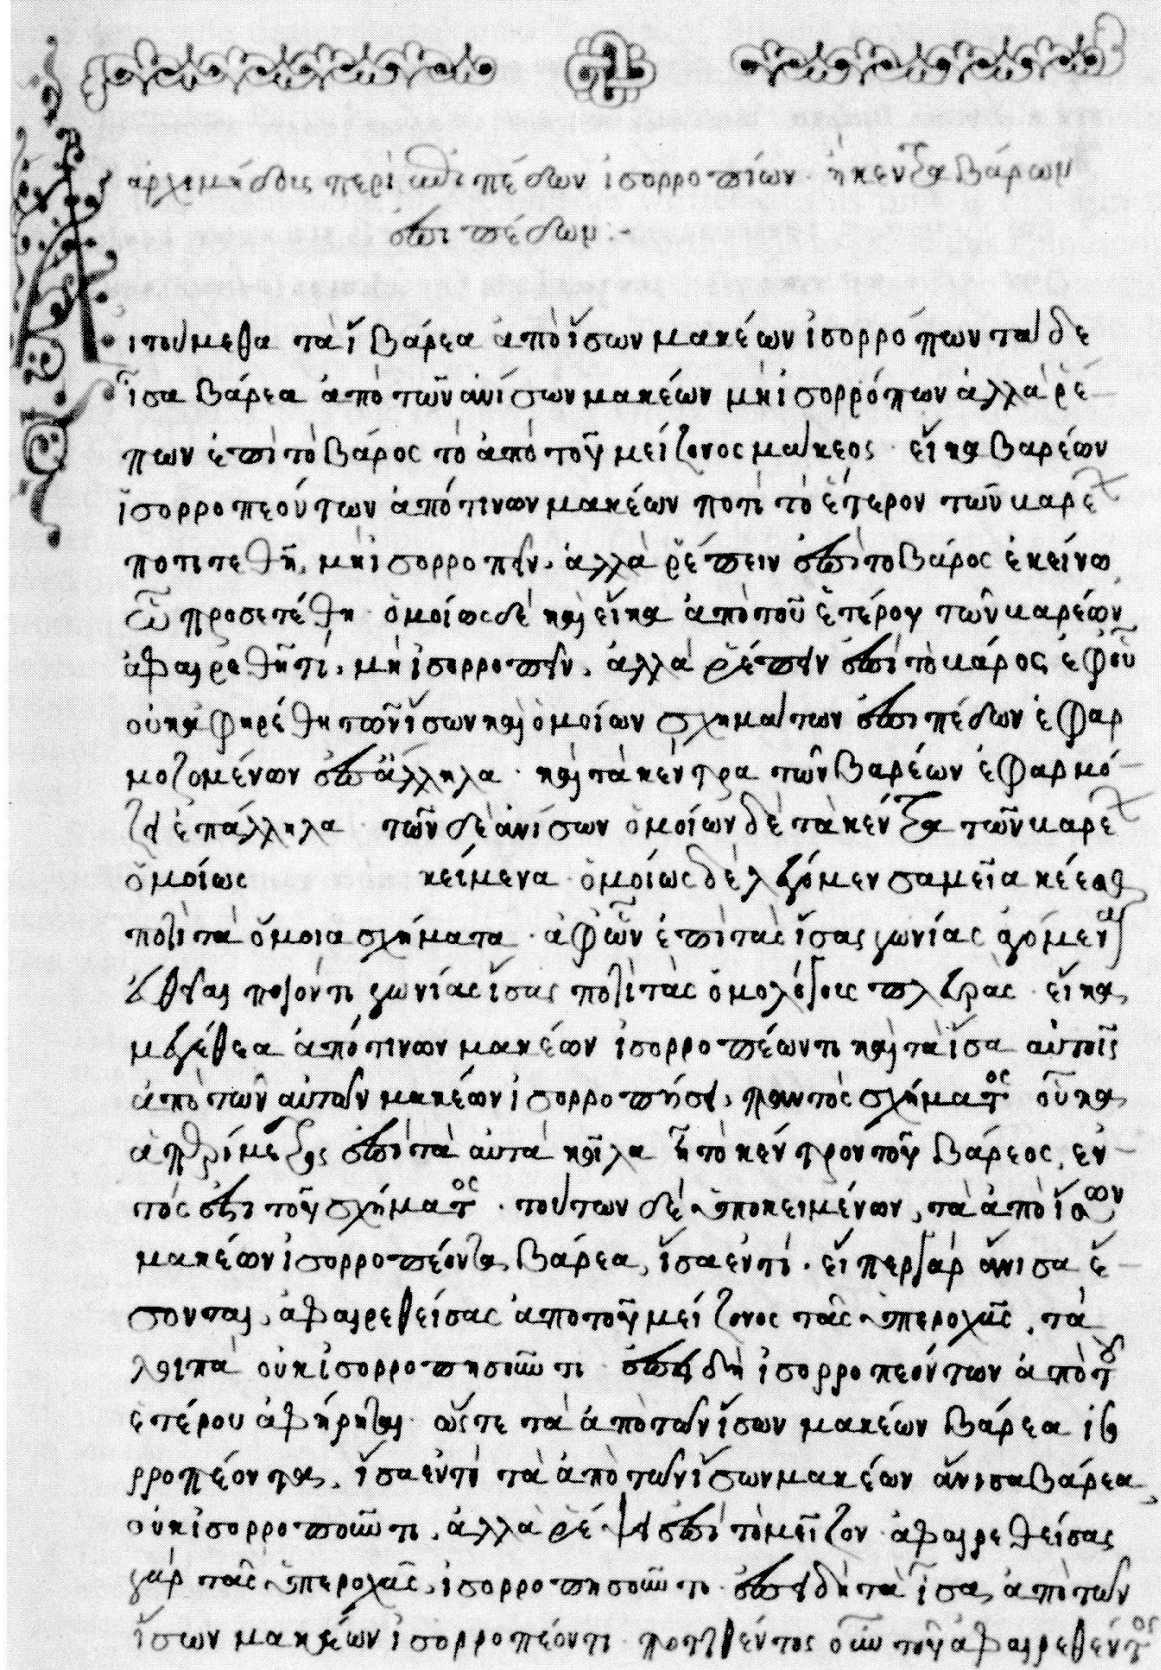 ἀρχιμήδους περὶ ἐπιπέδων ἰσορροπιῶν ἢ κέντρα βάρων
ἐπιπέδων:-
Αἰτούμεθα τὰ ἴ βάρεα ἀπὸ ἴσων μακέων ἰσορρόπων τὰ δὲ
ἶσα βάρεα ἀπὸ τῶν ἀνίσων μακέων μὴ ἰσορρόπων ἀλλὰ ῥέ-
πων ἐπὶ τὸ βάρος τὸ ἀπὸ τοῦ μείζονος μάκεος· εἴ κα βαρέων
ἰσορροπεόντων ἀπό τινων μακέων ποτὶ τὸ ἕτερον τῶν βαρέ
ποτιτεθῆ, μὴ ἰσορροπεῖν, ἀλλὰ ῥέπειν ἐπὶ τὸ βάρος ἐκείνω
ὧ προσετέθη· ὁμοίως δὲ καὶ εἴ κα ἀπὸ τοῦ ἑτέρου τῶν βαρέων
ἀφαιρεθῆ τί, μὴ ἰσορροπεῖν, ἀλλὰ ῥέπειν ἐπὶ τὸ βάρος ἐφ' οὗ
οὐκ ἀφηρέθη τῶν ἴσων καὶ ὁμοίων σχημάτων ἐπιπέδων ἐφαρ
μοζομένων ἐπ' ἄλληλα· καὶ τὰ κέντρα τῶν βαρέων ἐφαρμό-
ζει ἐπ' ἄλληλα· τῶν δὲ ἀνίσων ὁμοίων δὲ τὰ κέντρα τῶν βαρέ
ὁμοίως κείμενα· ὁμοίως δὲ λέγομεν σαμεῖα κέεσθαι
ποτὶ τὰ ὅμοια σχήματα· ἀφ' ὧν ἐπὶ τὰς ἴσας γωνίας ἀγόμεναι
εὐθεῖαι ποιόντι γωνίας ἴσας ποτὶ τὰς ὁμολόγους πλευράς· εἴ κα
μεγέθεα ἀπό τινων μακέων ἰσορροπέωντι καὶ τὰ ἴσα αὐτοῖς
ἀπὸ τῶν αὐτῶν μακέων ἰσορροπήσει, παντὸς σχήματος οὗ κα
ἁ περίμετρος ἐπὶ τὰ αὐτὰ κοῖλα ἦ τὸ κέντρον τοῦ βάρεος, ἐν-
τός ἐστι τοῦ σχήματος· τούτων δὲ ὑποκειμένων, τὰ ἀπὸ ἴσων
μακέων ἰσορροπέοντα βάρεα, ἴσα ἐντί· εἴπερ γὰρ ἄνισα ἔ-
σονται, ἀφαιρεθείσας ἀπὸ τοῦ μείζονος τᾶς ὑπεροχᾶς, τὰ
λοιπὰ οὐκ ἰσορροπησοῦντι ἐπειδὴ ἰσορροπεόντων ἀπὸ τοῦ
ἑτέρου ἀφήρηται· ὥστε τὰ ἀπὸ τῶν ἴσων μακέων βάρεα ἰσο
ρροπέοντα, ἴσα ἐντί τὰ ἀπὸ τῶν ἴσων μακέων ἄνισα βάρεα
οὐκ ἰσορροποῦντι, ἀλλὰ ῥέψει ἐπὶ τὸ μεῖζον· ἀφαιρεθείσας
γὰρ τᾶς ὑπεροχᾶς, ἰσορροπησοῦντι· ἐπειδὴ τὰ ἴσα ἀπὸ τῶν
ἴσων μακέων ἰσορροπέοντι· ποτιτεθέντος οὖν τοῦ ἀφαιρεθέντος